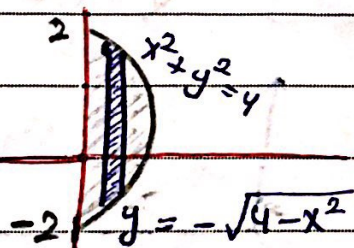 2
x² + y² = 4
-2
y = -√(4-x²)